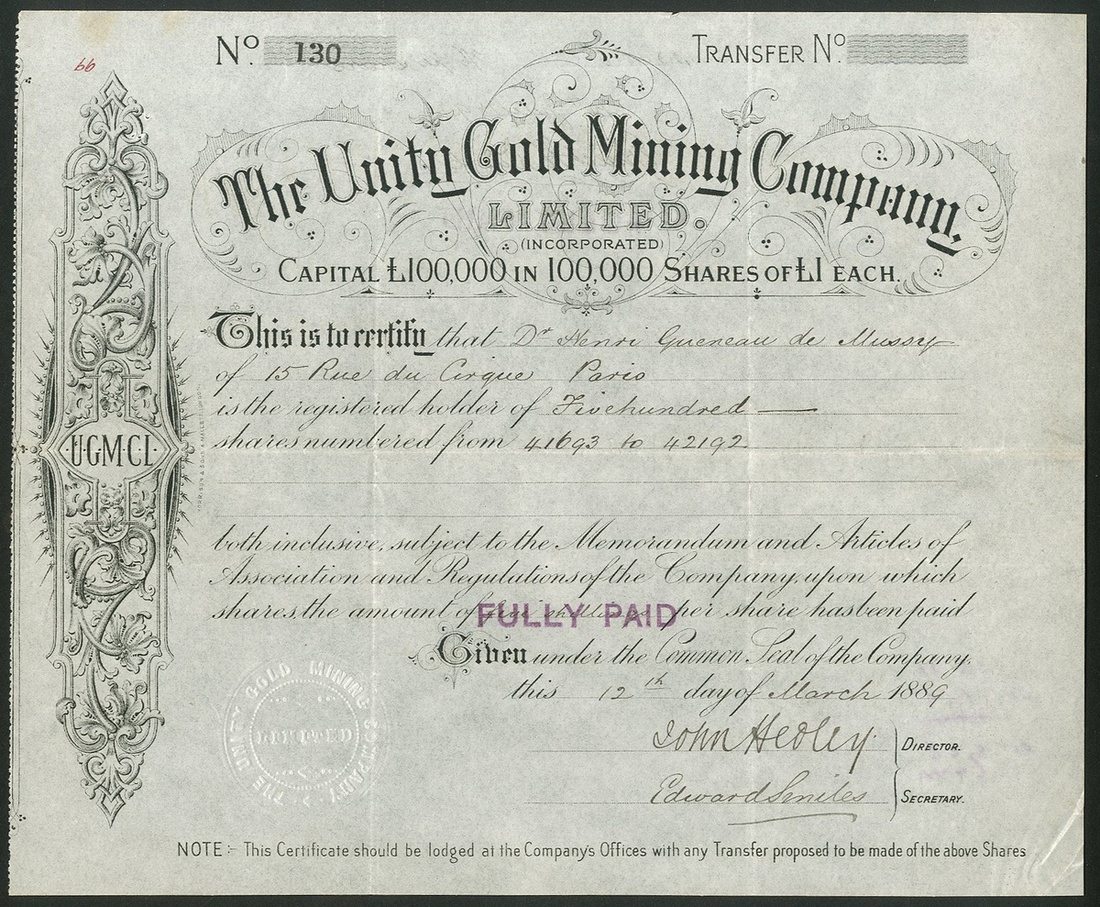 66
No. 130 TRANSFER No.
The Unity Gold Mining Company.
LIMITED.
(INCORPORATED)
CAPITAL £100,000 IN 100,000 SHARES OF £1 EACH.
This is to certify that Dr Henri Gueneau de Mussy
of 15 Rue du Cirque Paris
is the registered holder of Five hundred —
shares numbered from 41693 to 42192
U.G.M.C.L.
both inclusive, subject to the Memorandum and Articles of
Association and Regulations of the Company, upon which
shares, the amount of per share has been paid
FULLY PAID
Given under the Common Seal of the Company,
this 12th day of March 1889
John Hedley DIRECTOR.
Edward Smiles SECRETARY.
THE UNITY GOLD MINING COMPANY
LIMITED
NOTE:- This Certificate should be lodged at the Company's Offices with any Transfer proposed to be made of the above Shares